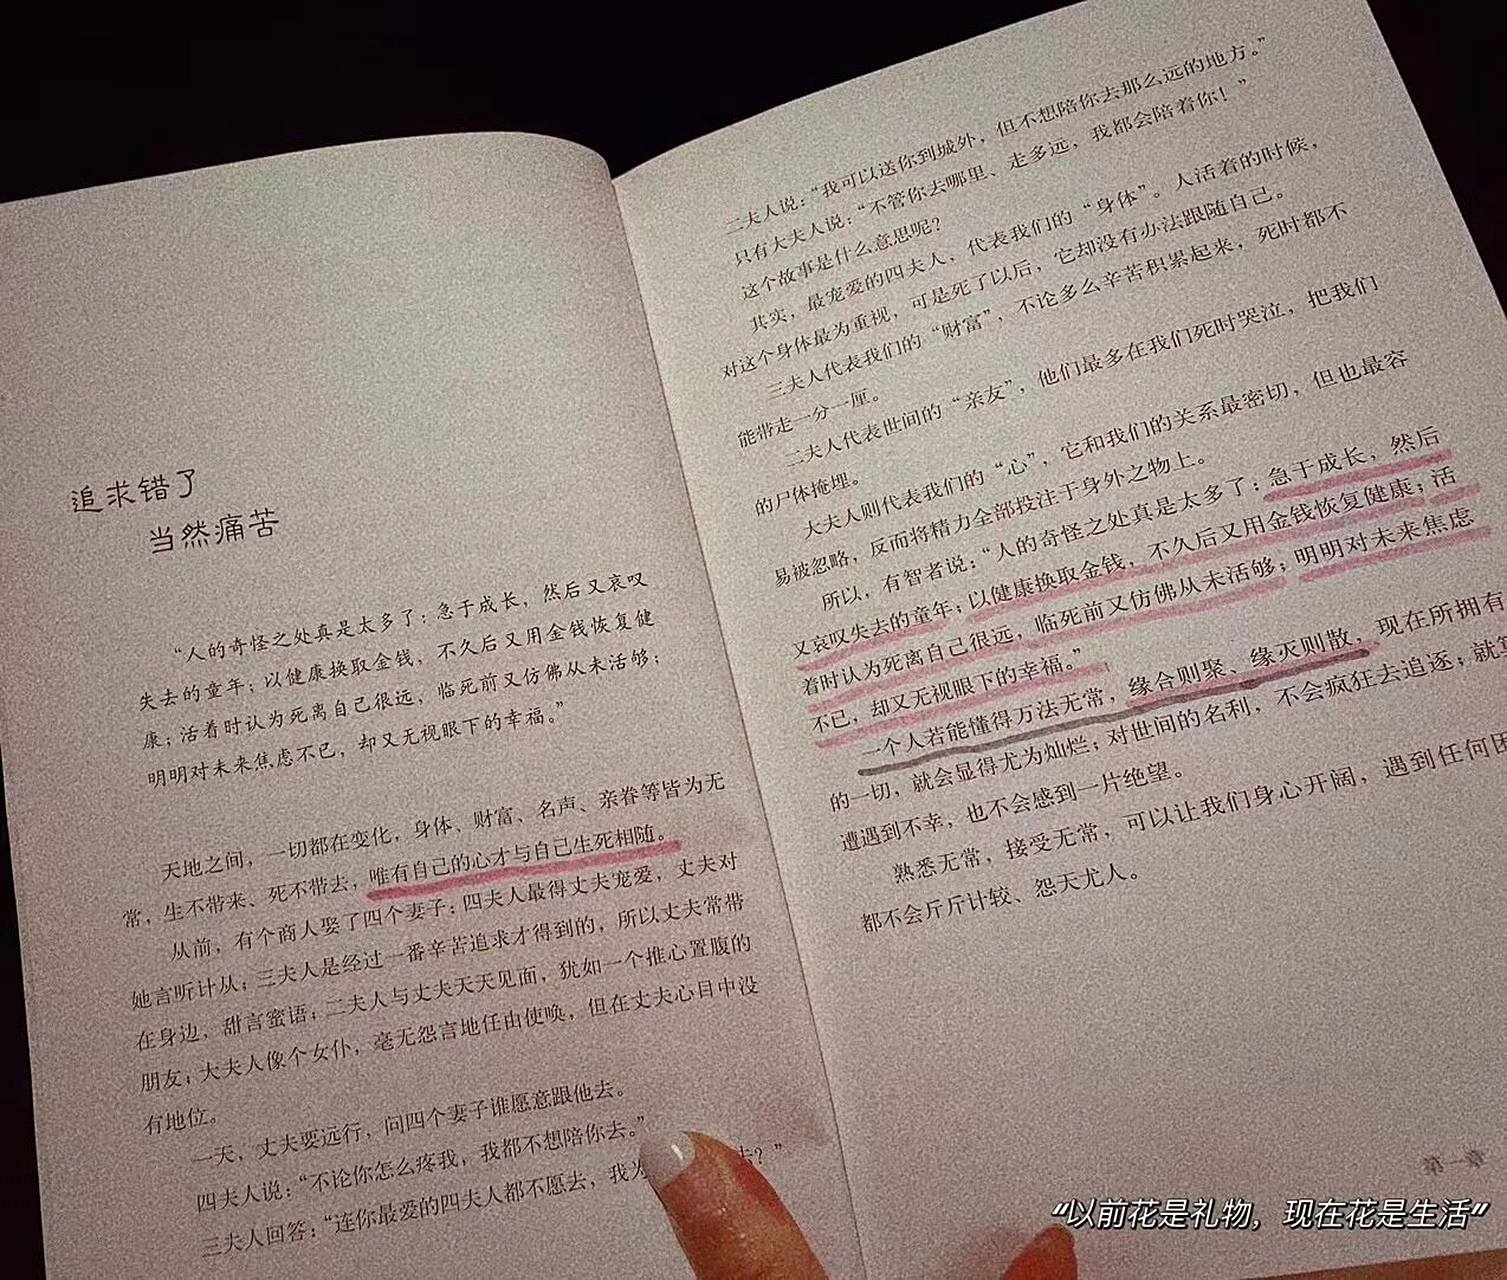 追求错了
当然痛苦
“人的奇怪之处真是太多了：急于成长，然后又哀叹
失去的童年；以健康换取金钱，不久后又用金钱恢复健
康；活着时认为死离自己很远，临死前又仿佛从未活够；
明明对未来焦虑不已，却又无视眼下的幸福。”
天地之间，一切都在变化，身体、财富、名声、亲眷等皆为无
常，生不带来、死不带去，唯有自己的心才与自己生死相随。
从前，有个商人娶了四个妻子：四夫人最得丈夫宠爱，丈夫对
她言听计从；三夫人是经过一番辛苦追求才得到的，所以丈夫常带
在身边，甜言蜜语；二夫人与丈夫天天见面，犹如一个推心置腹的
朋友；大夫人像个女仆，毫无怨言地任由使唤，但在丈夫心目中没
有地位。
一天，丈夫要远行，问四个妻子谁愿意跟他去。
四夫人说：“不论你怎么疼我，我都不想陪你去。”
三夫人回答：“连你最爱的四夫人都不愿去，我为去？”
二夫人说：“我可以送你到城外，但不想陪你去那么远的地方。”
只有大夫人说：“不管你去哪里、走多远，我都会陪着你！”
这个故事是什么意思呢？
其实，最宠爱的四夫人，代表我们的“身体”。人活着的时候，
对这个身体最为重视，可是死了以后，它却没有办法跟随自己。
三夫人代表我们的“财富”，不论多么辛苦积累起来，死时都不
能带走一分一厘。
二夫人代表世间的“亲友”，他们最多在我们死时哭泣，把我们
的尸体掩埋。
大夫人则代表我们的“心”，它和我们的关系最密切，但也最容
易被忽略，反而将精力全部投注于身外之物上。
所以，有智者说：“人的奇怪之处真是太多了：急于成长，然后
又哀叹失去的童年；以健康换取金钱，不久后又用金钱恢复健康；活
着时认为死离自己很远，临死前又仿佛从未活够；明明对未来焦虑
不已，却又无视眼下的幸福。”
一个人若能懂得万法无常，缘合则聚、缘灭则散，现在所拥有
的一切，就会显得尤为灿烂；对世间的名利，不会疯狂去追逐；就算
遭遇到不幸，也不会感到一片绝望。
熟悉无常，接受无常，可以让我们身心开阔，遇到任何困
都不会斤斤计较、怨天尤人。
第一章
“以前花是礼物，现在花是生活”